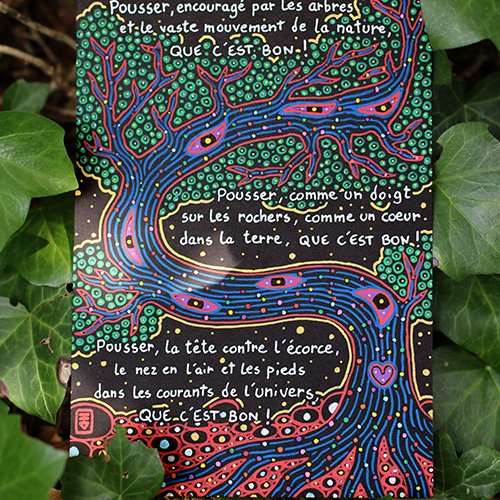 Pousser, encouragé par les arbres
et le vaste mouvement de la nature,
QUE C'EST BON !
Pousser, comme un doigt
sur les rochers, comme un coeur
dans la terre, QUE C'EST BON !
Pousser, la tête contre l'écorce,
le nez en l'air et les pieds
dans les courants de l'univers,
QUE C'EST BON !